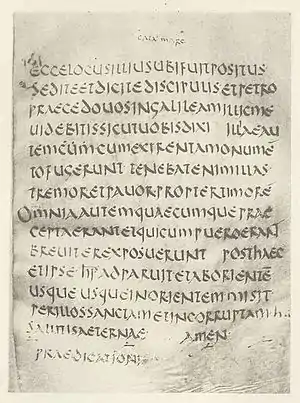 ECCE LOCUS ILLIUS UBI FUIT POSITUS
SED ITE ET DICITE DISCIPULIS ET PETRO
PRAECEDO UOS IN GALILEAM ILLIC ME
UIDEBITIS SICUT UOBIS DIXI ILLAE AU
TEM CUM CUM EXIRENT A MONUMEN
TO FUGERUNT TENEBAT ENIM ILLAS
TREMOR ET PAUOR PROPTER TIMORE
OMNIA AUTEM QUAECUMQUE PRAE
CEPTA ERANT ET QUI CUM PUERO ERAN
BREUITER EXPOSUERUNT POST HAEC
ET IPSE HS ADPARUIT ET AB ORIENTE
USQUE USQUE IN ORIENTEM MISIT
PER ILLOS SANCTAM ET INCORRUPTAM
SALUTIS AETERNAE AMEN
PRAEDICATIONIS